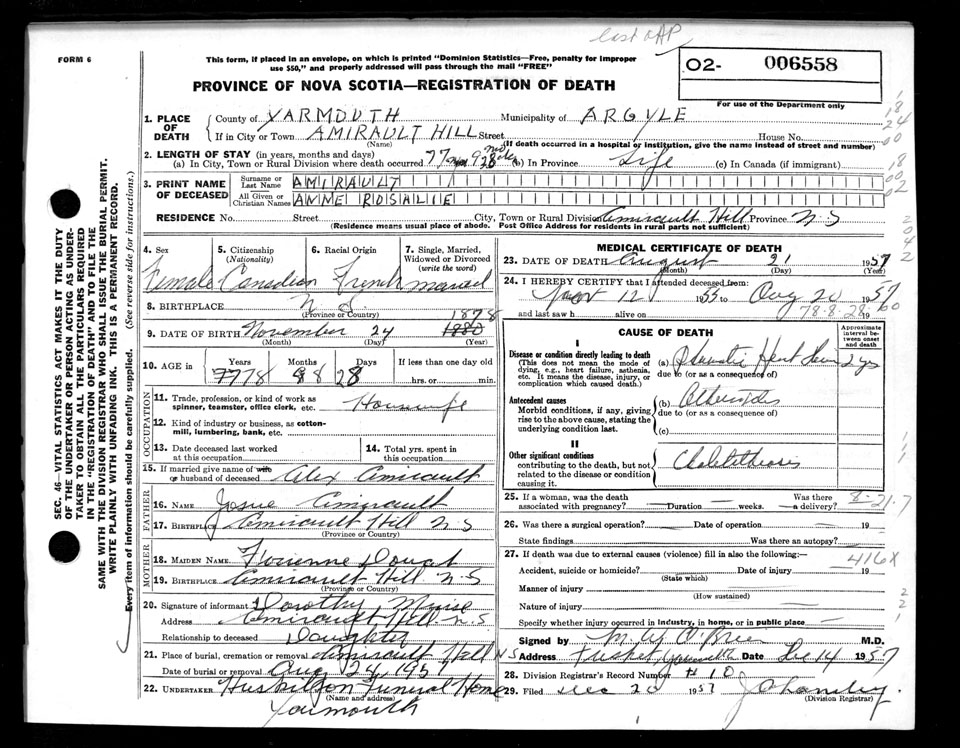 FORM 6
This form, if placed in an envelope, on which is printed "Dominion Statistics—Free, penalty for improper
use $50," and properly addressed will pass through the mail "FREE"
PROVINCE OF NOVA SCOTIA—REGISTRATION OF DEATH
02- 006558
For use of the Department only
SEC. 46—VITAL STATISTICS ACT MAKES IT THE DUTY
OF THE UNDERTAKER OR PERSON ACTING AS UNDER-
TAKER TO OBTAIN ALL THE PARTICULARS REQUIRED
IN THE "REGISTRATION OF DEATH" AND TO FILE THE
SAME WITH THE DIVISION REGISTRAR WHO SHALL ISSUE THE BURIAL PERMIT.
WRITE PLAINLY WITH UNFADING INK. THIS IS A PERMANENT RECORD.
Every item of information should be carefully supplied. (See reverse side for instructions.)
1. PLACE OF DEATH County of YARMOUTH Municipality of ARGYLE
If in City or Town AMIRAULT HILL Street House No.
(Name) (If death occurred in a hospital or institution, give the name instead of street and number)
2. LENGTH OF STAY (in years, months and days)
(a) In City, Town or Rural Division where death occurred 77 (b) In Province Life (c) In Canada (if immigrant)
3. PRINT NAME OF DECEASED Surname or Last Name AMIRAULT
All Given or Christian Names ANNE ROSALIE
RESIDENCE No. Street City, Town or Rural Division Amirault Hill Province N.S
(Residence means usual place of abode. Post Office Address for residents in rural parts not sufficient)
4. Sex 5. Citizenship (Nationality) 6. Racial Origin 7. Single, Married, Widowed or Divorced (write the word)
Female Canadian French married
8. BIRTHPLACE N S
(Province or Country) 1878
9. DATE OF BIRTH November 24 1880
(Month) (Day) (Year)
10. AGE in Years Months Days If less than one day old
77 78 8 28 hrs. or min.
OCCUPATION
11. Trade, profession, or kind of work as spinner, teamster, office clerk, etc. Housewife
12. Kind of industry or business, as cotton-mill, lumbering, bank, etc.
13. Date deceased last worked at this occupation 14. Total yrs. spent in this occupation
15. If married give name of wife or husband of deceased Alex Amirault
FATHER
16. Name Josue Amirault
17. Birthplace Amirault Hill N S
(Province or Country)
MOTHER
18. Maiden Name
19. Birthplace Amirault Hill N-S
(Province or Country)
20. Signature of informant Dorothy Muise
Address Amirault Hill N.S
Relationship to deceased Daughter
21. Place of burial, cremation or removal Amirault Hill N S
Date of burial or removal Aug 24 1957
22. UNDERTAKER Huskilson Funeral Home
(Name and address)
Yarmouth
MEDICAL CERTIFICATE OF DEATH
23. DATE OF DEATH August 21 1957
(Month) (Day) (Year)
24. I HEREBY CERTIFY that I attended deceased from:
12 1955 to Aug 20 1957
and last saw h alive on 19
78-8-28
CAUSE OF DEATH
Approximate interval between onset and death
I
Disease or condition directly leading to death
(This does not mean the mode of dying, e.g., heart failure, asthenia, etc. It means the disease, injury, or complication which caused death.)
(a) 2 yrs
due to (or as a consequence of)
Antecedent causes
Morbid conditions, if any, giving rise to the above cause, stating the underlying condition last.
(b)
due to (or as a consequence of)
(c)
II
Other significant conditions
contributing to the death, but not related to the disease or condition causing it.
Cholelithiasis
25. If a woman, was the death associated with pregnancy? Duration weeks. Was there a delivery? 8-21-7
26. Was there a surgical operation? Date of operation 19
State findings Was there an autopsy?
27. If death was due to external causes (violence) fill in also the following:— 416X
Accident, suicide or homicide? Date of injury 19
(State which)
Manner of injury
(How sustained)
Nature of injury
Specify whether injury occurred in Industry, in home, or in public place
Signed by M.D.
Address Tusket, Yarmouth Date Dec 14 1957
28. Division Registrar's Record Number # 10
29. Filed Dec 20 1957
(Division Registrar)